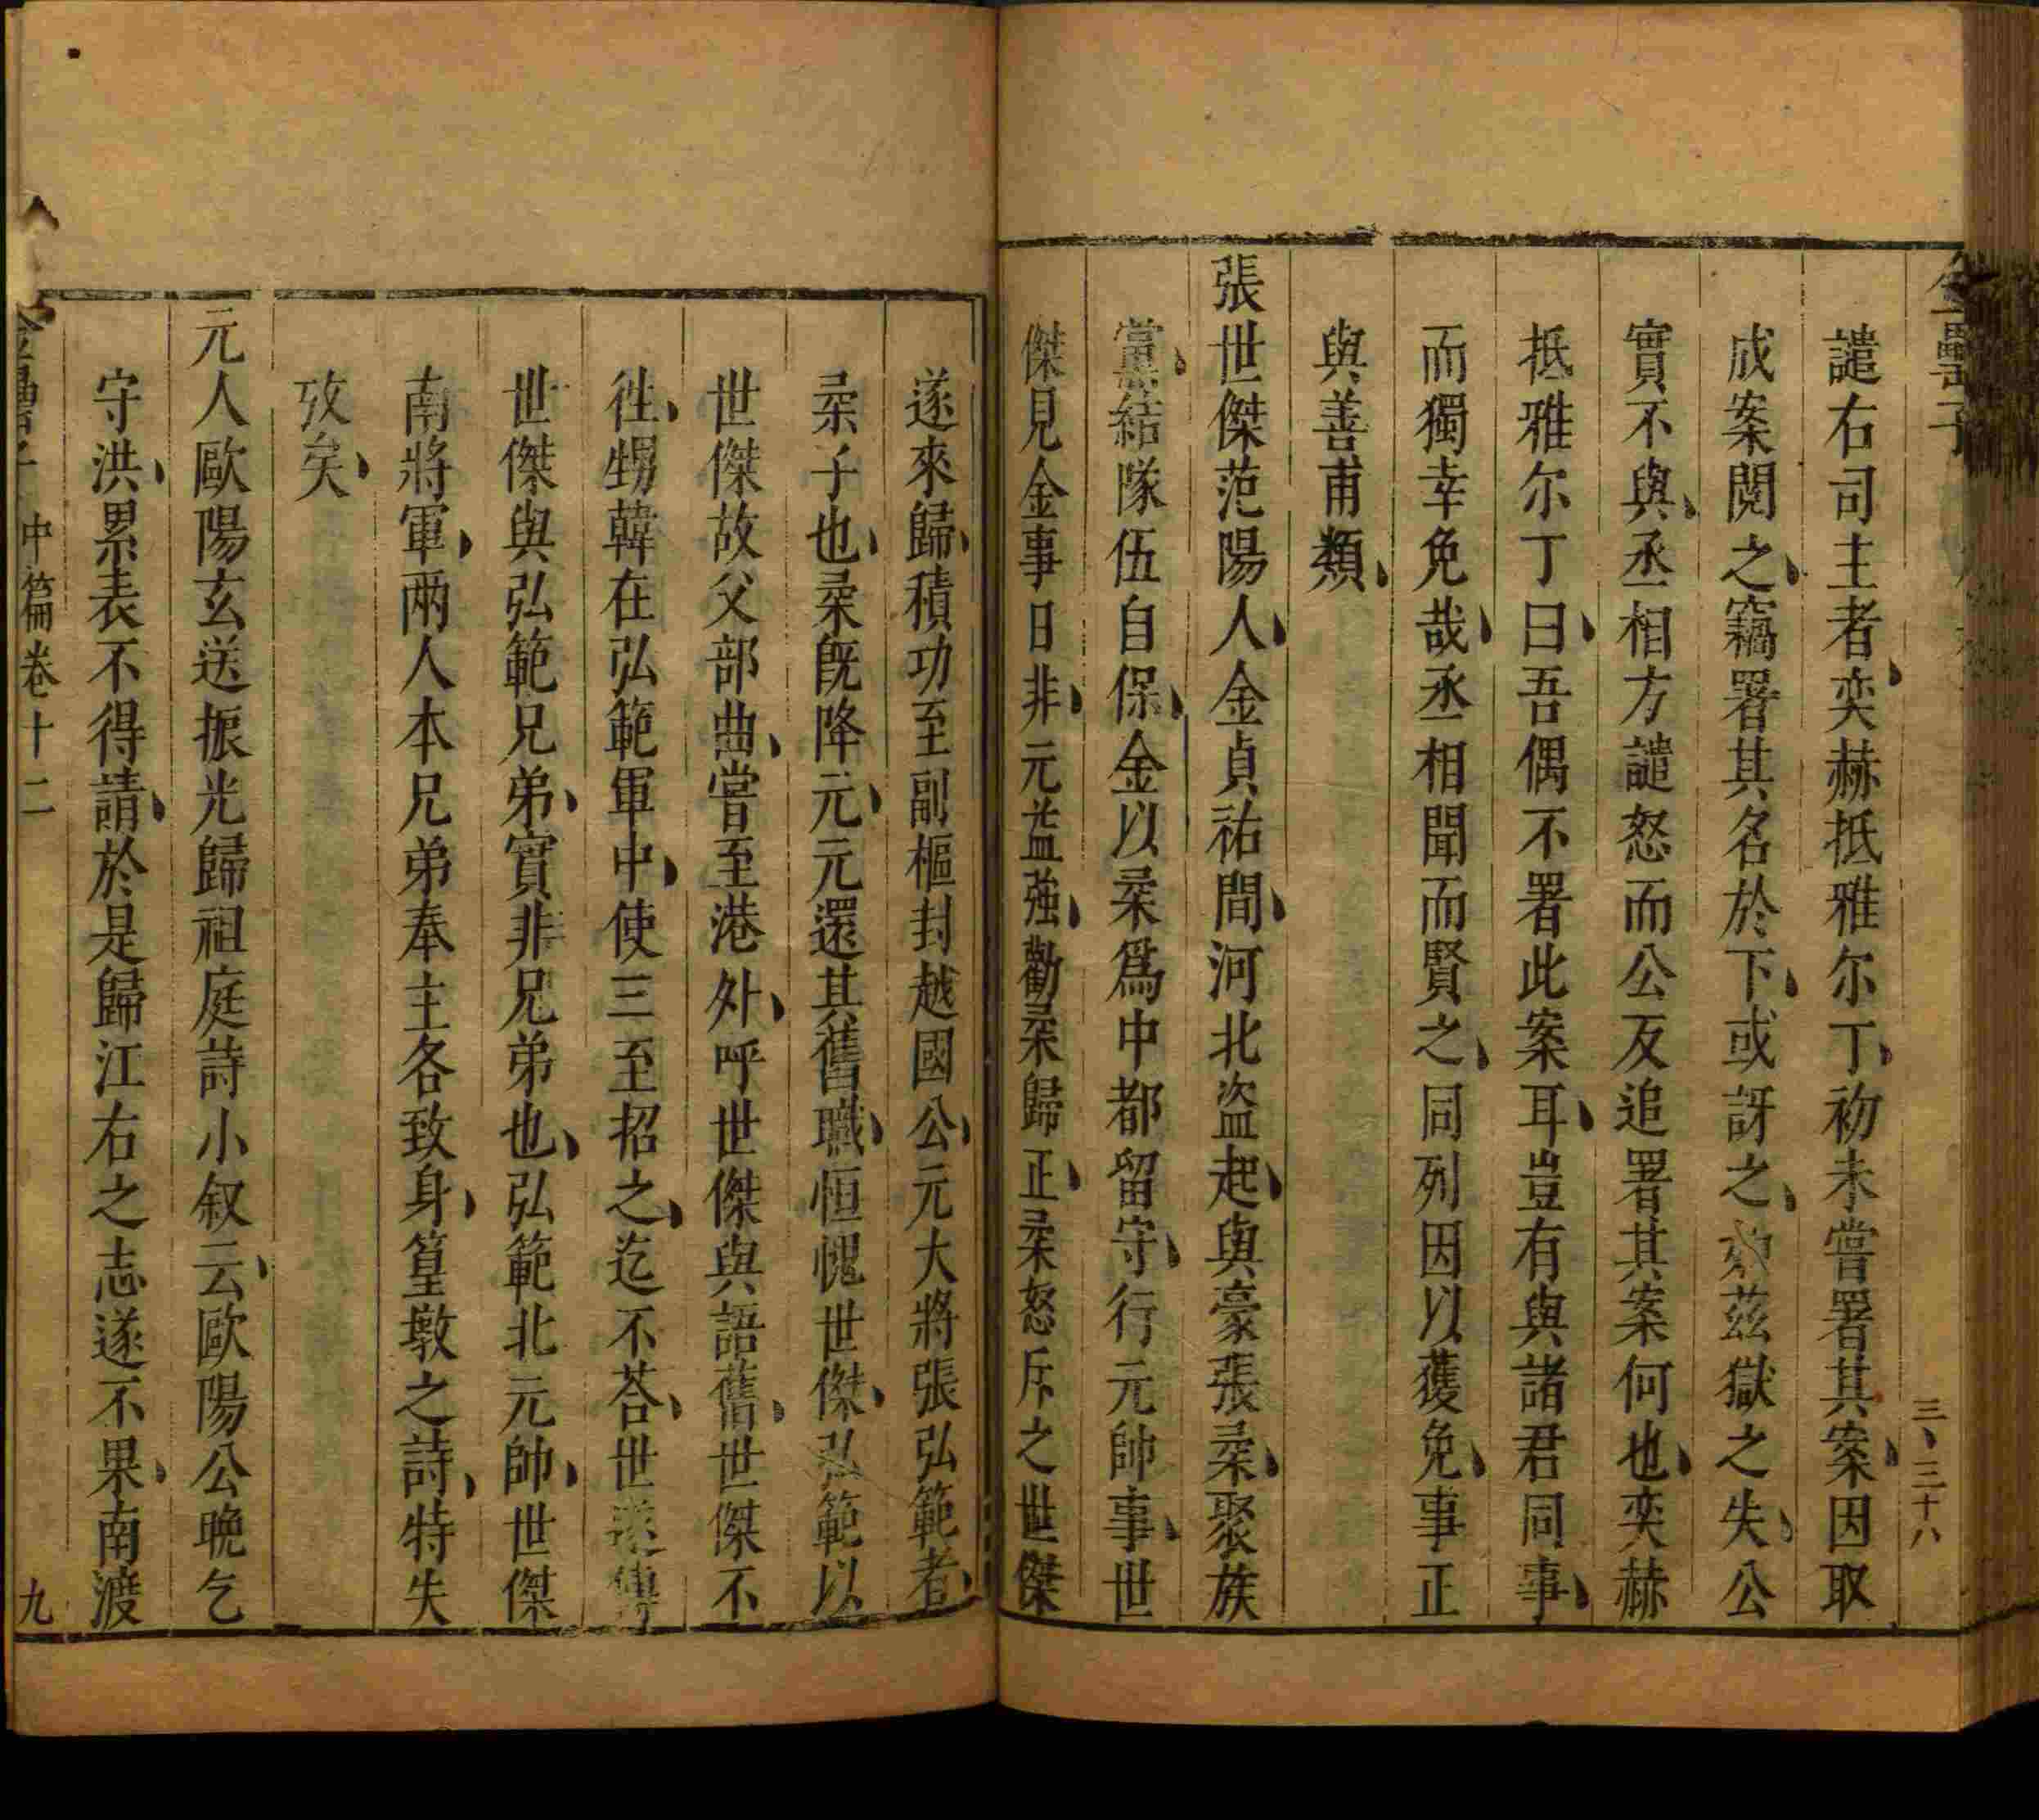 金罍子
三、三十八
譴右司主者奕赫抵雅尔丁初未嘗署其案因取
成案閱之竊署其名於下或訝之茲獄之失公
實不與丞相方譴怒而公反追署其案何也奕赫
抵雅尔丁曰吾偶不署此案耳豈有與諸君同事
而獨幸免哉丞相聞而賢之同列因以獲免事正
與善甫類
張世傑范陽人金貞祐間河北盜起與豪張柔聚族
黨結隊伍自保金以柔爲中都留守行元帥事世
傑見金事日非元益強勸柔歸正柔怒斥之世傑
遂來歸積功至副樞封越國公元大將張弘範者
柔子也柔旣降元元還其舊職恒愧世傑弘範以
世傑故父部曲嘗至港外呼世傑與語舊世傑不
徃甥韓在弘範軍中使三至招之迄不荅世遂傳
世傑與弘範兄弟實非兄弟也弘範北元帥世傑
南將軍兩人本兄弟奉主各致身篁墩之詩特失
攷矣
元人歐陽玄送振光歸祖庭詩小叙云歐陽公晚乞
守洪累表不得請於是歸江右之志遂不果南渡
中篇卷十二
九